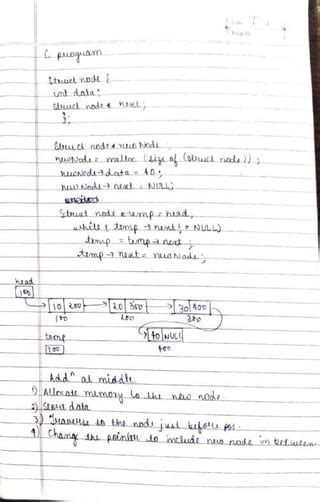 C program
Struct node {
int data;
struct node * next;
};
Struct node * newNode
newNode = malloc (size of (struct node));
newNode → data = 40;
newNode → next = NULL;
Struct node * temp = head;
while ( temp → next != NULL)
temp = temp → next ;
temp → next = newNode ;
head
100
10 200 → 20 300 → 30 400
100 200 300
temp 40 NULL
100 400
Addⁿ at middle
1) Allocate memory to the new node
2) Store data
3) Traverse to the node just before pos.
4) Change the pointer to include new node in between